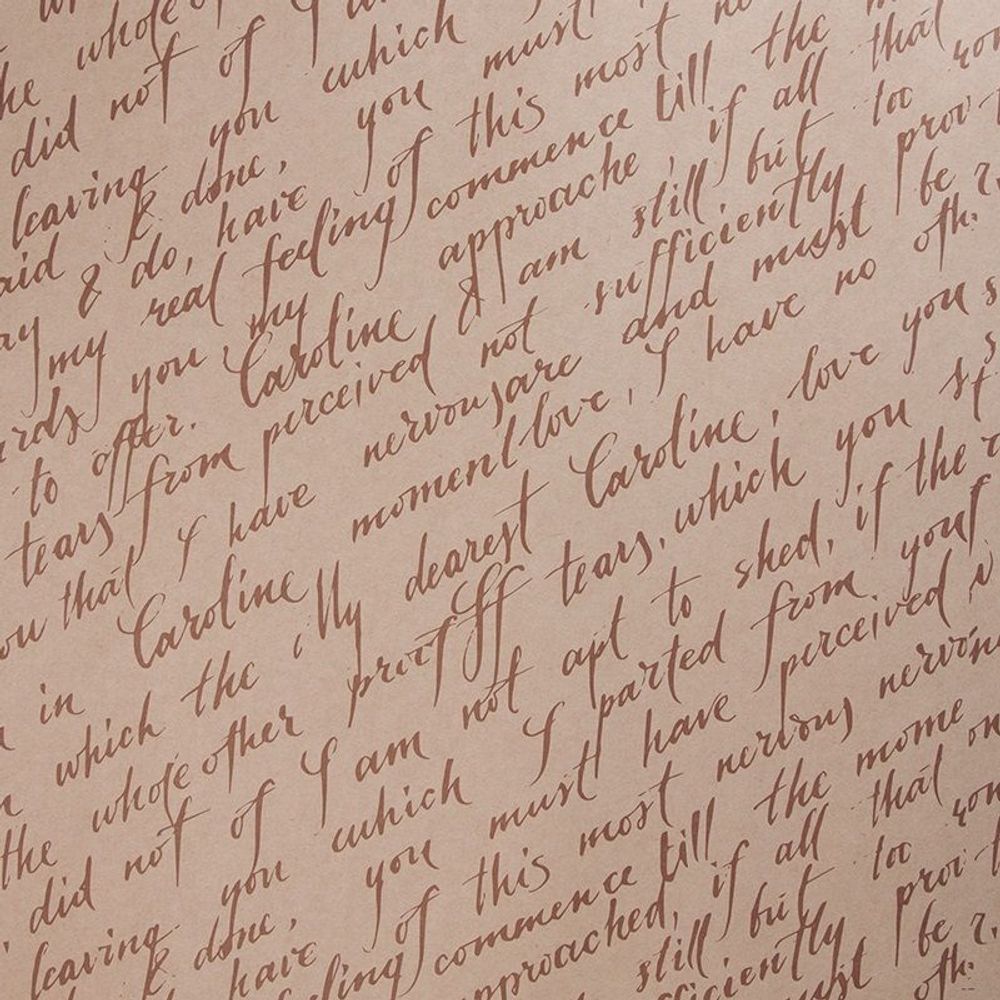 the whole
did not of I
leaving you which
aid & done, you must
ay & do, have of this most
my real feeling commence till the
ards you, my approache, if all that
to offer. Caroline, & am still but too you
tears from perceived not sufficiently prov
ou that I have nervous are and must be
in Caroline moment love, I have no oth
which the, My dearest Caroline, love you s
the whole other proof ff tears, which you st
did not of I am not apt to shed, if the
leaving you which I parted from you
& done, you must have perceived
have of this most nervous nervou
eling commence till the mome
pproached, if all that on
still but too you
ciently prov
st be
oth